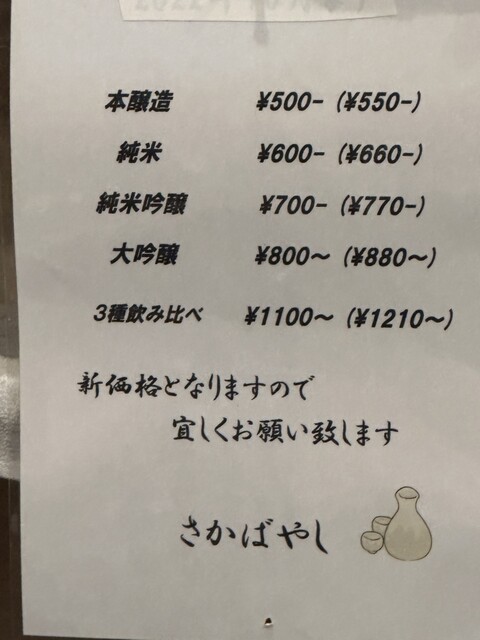 本醸造 ¥500- (¥550-)
純米 ¥600- (¥660-)
純米吟醸 ¥700- (¥770-)
大吟醸 ¥800〜 (¥880〜)
3種飲み比べ ¥1100〜 (¥1210〜)
新価格となりますので
宜しくお願い致します
さかばやし